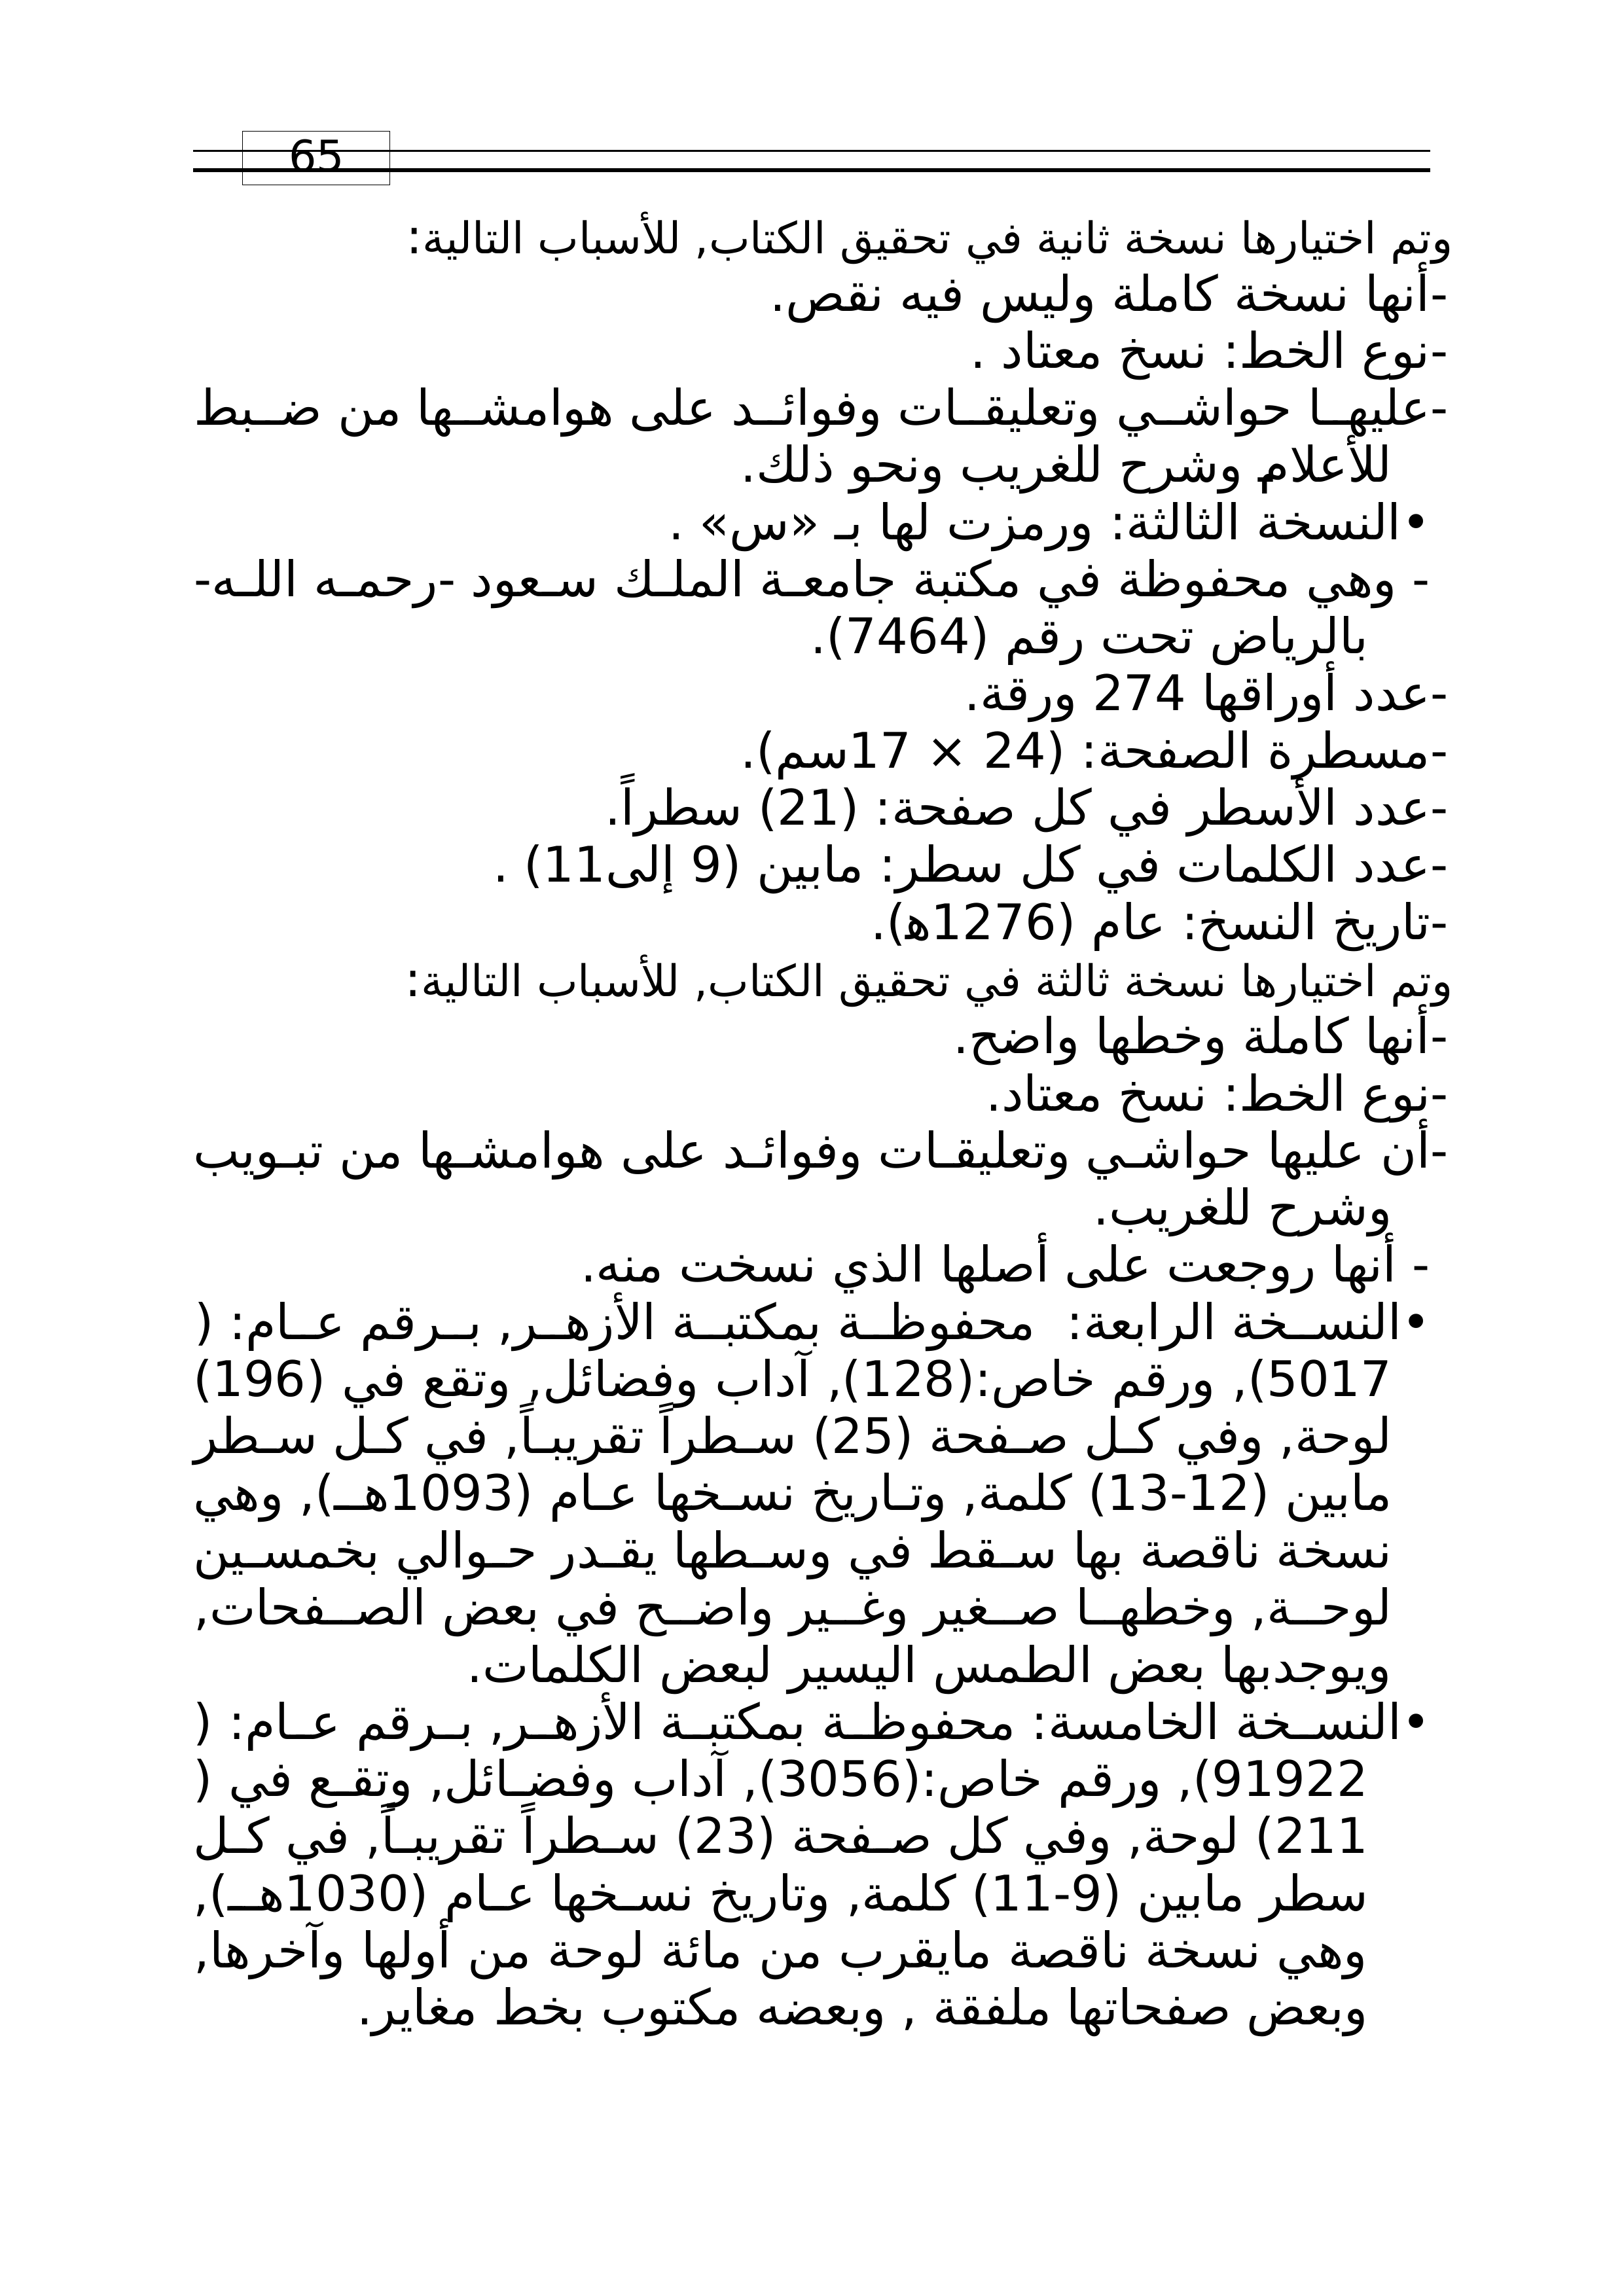 65
وتم اختيارها نسخة ثانية في تحقيق الكتاب, للأسباب التالية:
-أنها نسخة كاملة وليس فيه نقص.
-نوع الخط: نسخ معتاد .
-عليهــا حواشــي وتعليقــات وفوائــد على هوامشــها من ضــبط
للأعلام وشرح للغريب ونحو ذلك.
•النسخة الثالثة: ورمزت لها بـ «س» .
- وهي محفوظة في مكتبة جامعـة الملـك سـعود -رحمـه اللـه-
بالرياض تحت رقم (7464).
-عدد أوراقها 274 ورقة.
-مسطرة الصفحة: (24 × 17سم).
-عدد الأسطر في كل صفحة: (21) سطراً.
-عدد الكلمات في كل سطر: مابين (9 إلى11) .
-تاريخ النسخ: عام (1276ﻫ).
وتم اختيارها نسخة ثالثة في تحقيق الكتاب, للأسباب التالية:
-أنها كاملة وخطها واضح.
-نوع الخط: نسخ معتاد.
-أن عليها حواشـي وتعليقـات وفوائـد على هوامشـها من تبـويب
وشرح للغريب.
- أنها روجعت على أصلها الذي نسخت منه.
•النســخة الرابعة:  محفوظــة بمكتبــة الأزهــر, بــرقم عــام: (
5017), ورقم خاص:(128), آداب وفضائل, وتقع في (196)
لوحة, وفي كـل صـفحة (25) سـطراً تقريبـاً, في كـل سـطر
مابين (12-13) كلمة, وتـاريخ نسـخها عـام (1093هــ), وهي
نسخة ناقصة بها سـقط في وسـطها يقـدر حـوالي بخمسـين
لوحــة, وخطهــا صــغير وغــير واضــح في بعض الصــفحات,
ويوجدبها بعض الطمس اليسير لبعض الكلمات.
•النســخة الخامسة: محفوظــة بمكتبــة الأزهــر, بــرقم عــام: (
91922), ورقم خاص:(3056), آداب وفضـائل, وتقـع في (
211) لوحة, وفي كل صـفحة (23) سـطراً تقريبـاً, في كـل
سطر مابين (9-11) كلمة, وتاريخ نسـخها عـام (1030هــ),
وهي نسخة ناقصة مايقرب من مائة لوحة من أولها وآخرها,
وبعض صفحاتها ملفقة , وبعضه مكتوب بخط مغاير.